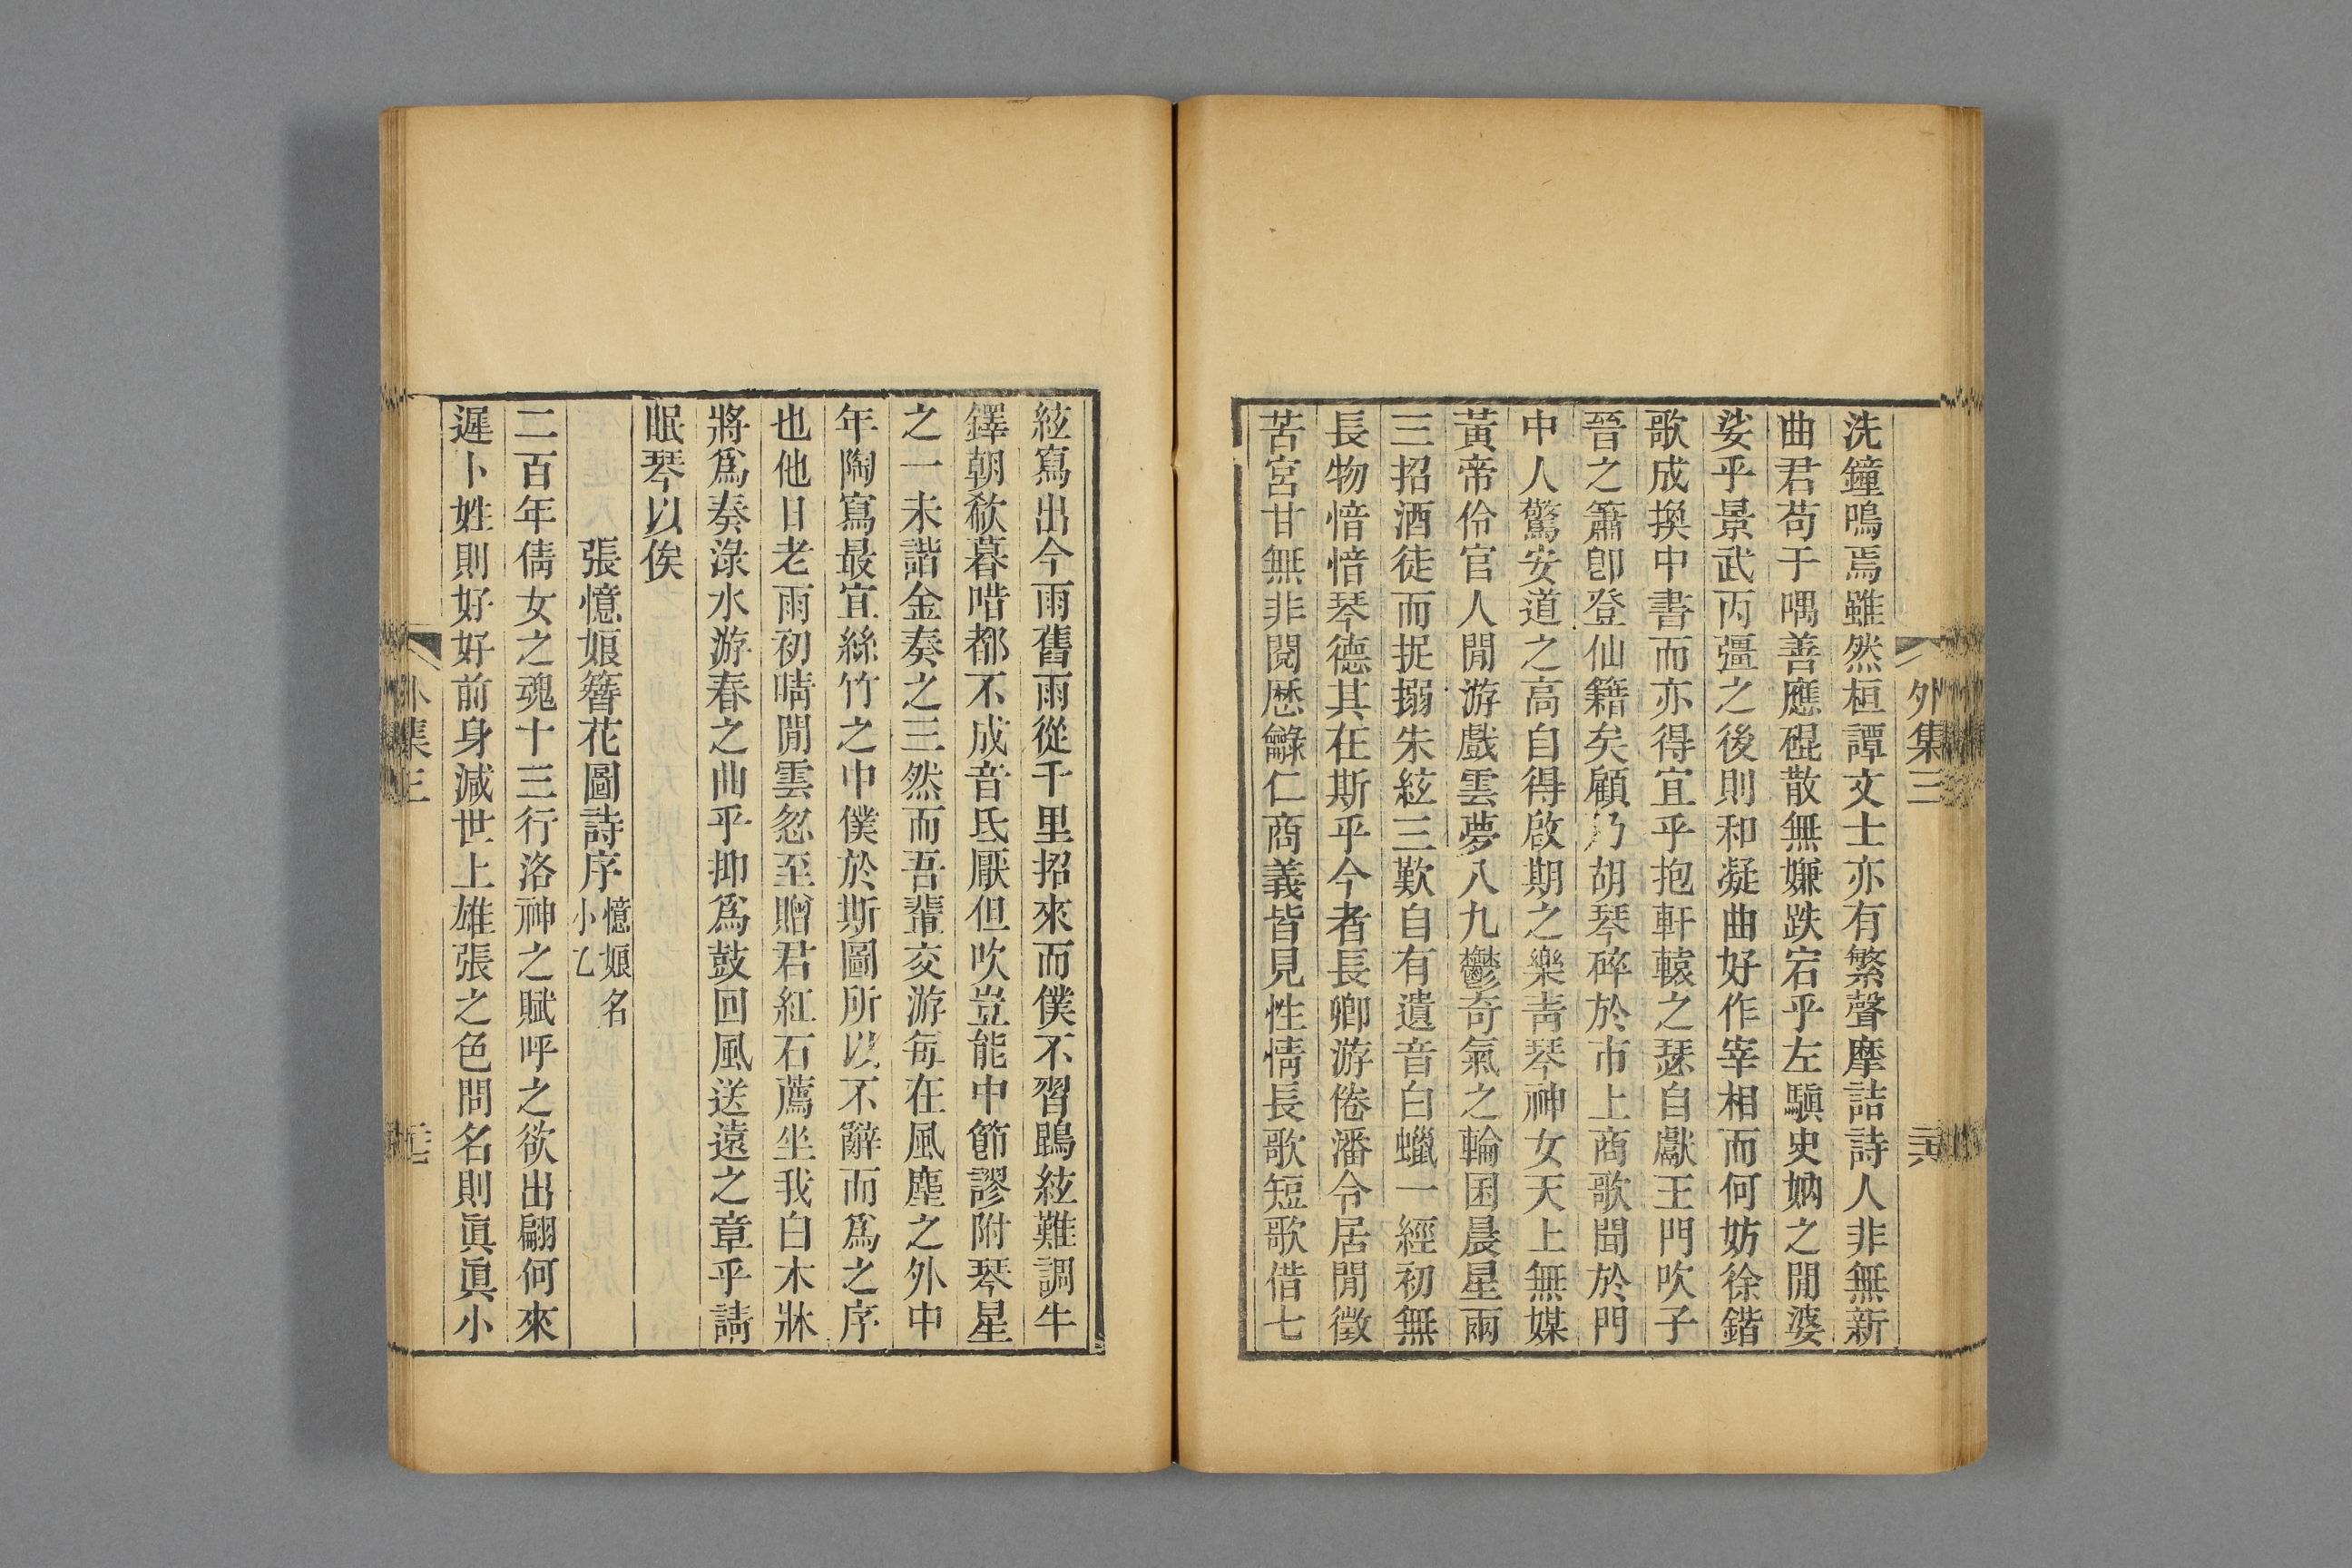 外集三
三六
洗鐘鳴焉雖然桓譚文士亦有繁聲摩詰詩人非無新
曲君苟于喁善應硍散無嫌跌宕乎左騏史妠之閒婆
娑乎景武丙彊之後則和凝曲好作宰相而何妨徐鍇
歌成換中書而亦得宜乎抱軒轅之瑟自獻王門吹子
晉之簫卽登仙籍矣顧乃胡琴碎於市上商歌聞於門
中人驚安道之高自得啟期之樂靑琴神女天上無媒
黃帝伶官人閒游戲雲夢八九鬱奇氣之輪囷晨星兩
三招酒徒而捉搦朱絃三歎自有遺音白蠟一經初無
長物愔愔琴德其在斯乎今者長卿游倦潘令居閒徵
苦宮甘無非閱歷龣仁商義皆見性情長歌短歌借七
絃寫出今雨舊雨從千里招來而僕不習鵾絃難調牛
鐸朝欷暮唶都不成音氐厭但吹豈能中節謬附琴星
之一未諧金奏之三然而吾輩交游每在風塵之外中
年陶寫最宜絲竹之中僕於斯圖所以不辭而爲之序
也他日老雨初晴閒雲忽至贈君紅石薦坐我白木牀
將爲奏淥水游春之曲乎抑爲鼓回風送遠之章乎請
眠琴以俟
張憶娘簪花圖詩序憶娘名
小乙
二百年倩女之魂十三行洛神之賦呼之欲出翩何來
遲卜姓則好好前身減世上雄張之色問名則眞眞小
外集三